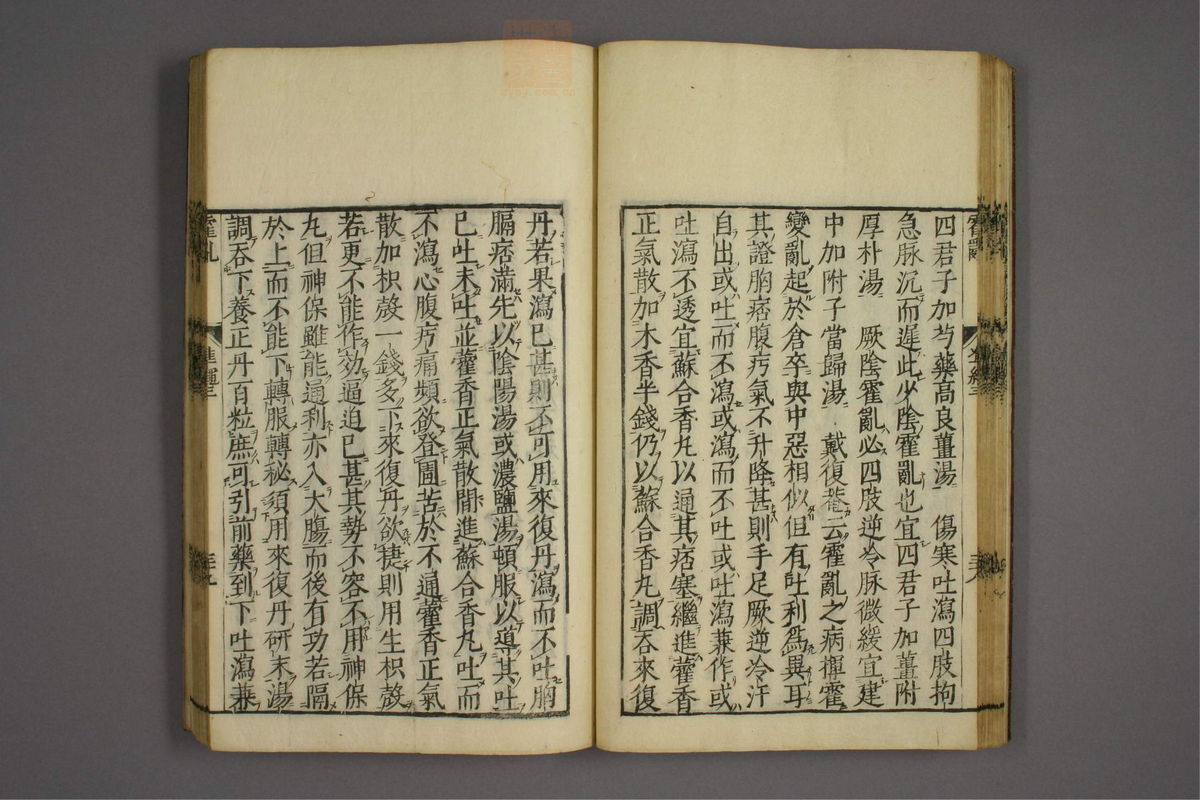 四君子加芍藥高良薑湯　傷寒吐瀉四肢拘
急脉沉而遲此少陰霍亂也宜四君子加薑附
厚朴湯　厥陰霍亂必四肢逆冷脉微緩宜建
中加附子當歸湯　戴復菴云霍亂之病揮霍
變亂起於倉卒與中惡相似但有吐利爲異耳
其證胸痞腹㽲氣不升降甚則手足厥逆冷汗
自出或吐而不瀉或瀉而不吐或吐瀉兼作或
吐瀉不透宜蘇合香丸以通其痞塞繼進藿香
正氣散加木香半錢仍以蘇合香丸調吞來復
丹若果瀉已甚則不可用來復丹瀉而不吐胸
膈痞滿先以陰陽湯或濃鹽湯頓服以導其吐
已吐未吐並藿香正氣散間進蘇合香丸吐而
不瀉心腹㽲痛頻欲登圊苦於不通藿香正氣
散加枳殼一錢多下來復丹欲㨗則用生枳殼
若更不能作効逼迫已甚其勢不容不用神保
丸但神保雖能通利亦入大腸而後有功若隔
於上而不能下轉服轉秘須用來復丹研末湯
調吞下養正丹百粒庶可引前藥到下吐瀉兼
霍亂